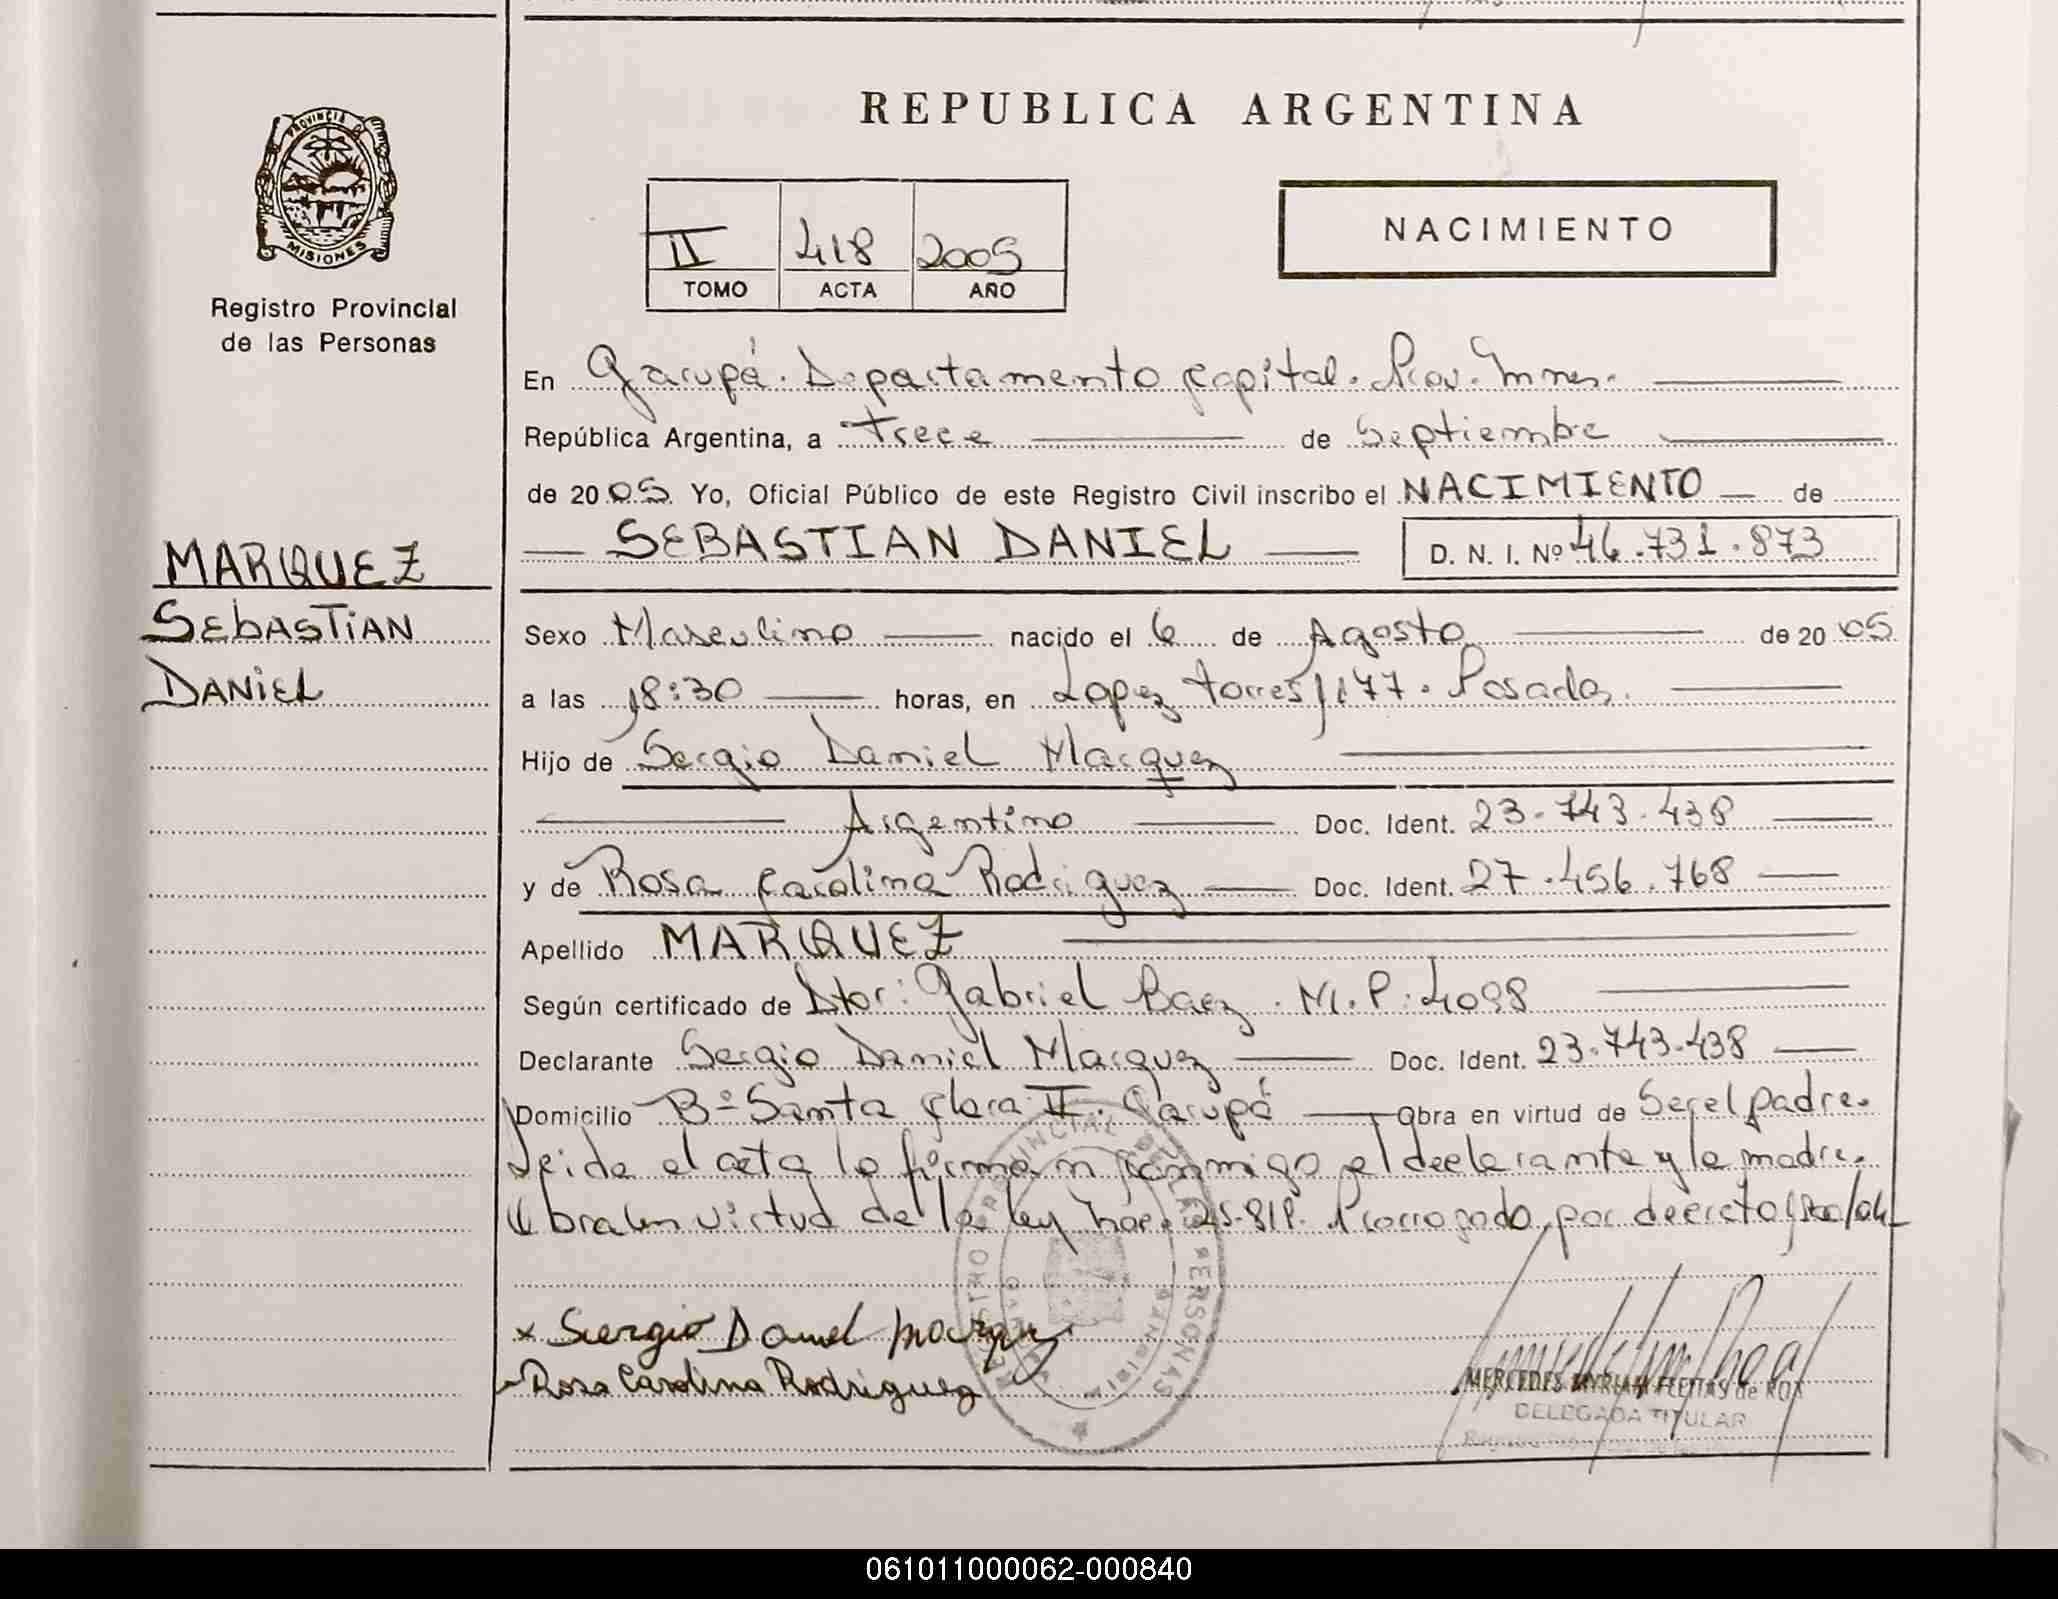 REPUBLICA ARGENTINA
PROVINCIA D
MISIONES
Registro Provincial
de las Personas
II 418 2005
TOMO ACTA AÑO
NACIMIENTO
En Garupá. Departamento Capital. Prov. Mnes.
República Argentina, a Trece de Septiembre
de 2005 Yo, Oficial Público de este Registro Civil inscribo el NACIMIENTO de
SEBASTIAN DANIEL D. N. I. Nº 46.731.873
MARQUEZ
SEBASTIAN
DANIEL
Sexo Masculino nacido el 6 de Agosto de 2005
a las 18:30 horas, en Lopez Torres 1177. Posadas.
Hijo de Sergio Daniel Marquez
Argentino Doc. Ident. 23.743.438
y de Rosa Carolina Rodriguez Doc. Ident. 27.456.768
Apellido MARQUEZ
Según certificado de Dtor: Gabriel Baez. M.P: 4098
Declarante Sergio Daniel Marquez Doc. Ident. 23.743.438
Domicilio Bº Santa Clara II. Garupá Obra en virtud de Ser el padre.
Leida el acta la firman conmigo el declarante y la madre.
Obra en virtud de la ley Nac. 25.819. Prorrogado por decreto
x Sergio Daniel Marquez
Rosa Carolina Rodriguez
REGISTRO PROVINCIAL DE LAS PERSONAS
MERCEDES MYRIAM FLEITAS de ROA
DELEGADA TITULAR
061011000062-000840